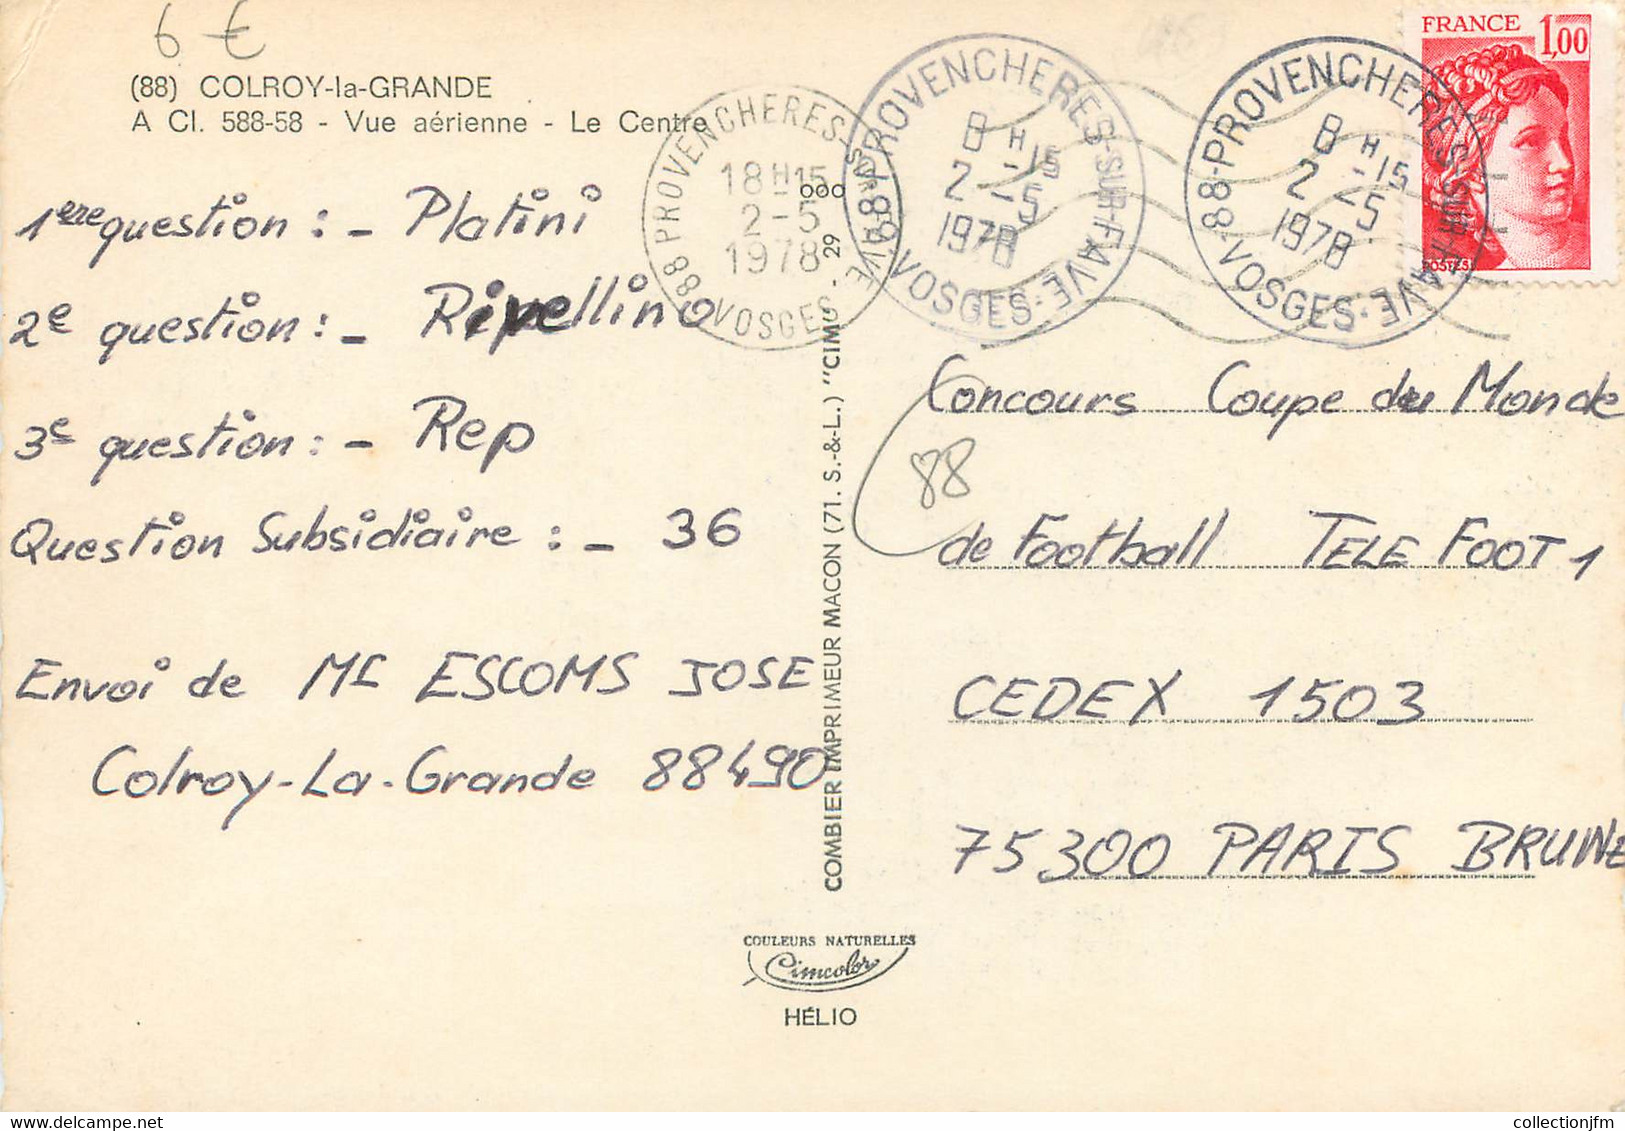 6 €
(88) COLROY-la-GRANDE
A Cl. 588-58 - Vue aérienne - Le Centre
1ere question : - Platini
2e question : - Rivellino
3e question : - Rep
Question Subsidiaire : - 36
Envoi de Mr ESCOMS JOSE
Colroy-La-Grande 88490
88 PROVENCHERES-SUR-FAVE
18H15
2-5
1978
VOSGES
88-PROVENCHERES-SUR-FAVE
8H-15
2-5
1978
VOSGES
88-PROVENCHERES-SUR-FAVE
8H-15
2-5
1978
VOSGES
FRANCE 1,00
POSTES
COMBIER IMPRIMEUR MACON (71. S.-&-L.) "CIM"
29
000
Concours Coupe du Monde
88
de Football TELE FOOT 1
CEDEX 1503
75300 PARIS BRUNE
COULEURS NATURELLES
Cimcolor
HÉLIO
collectionjfm